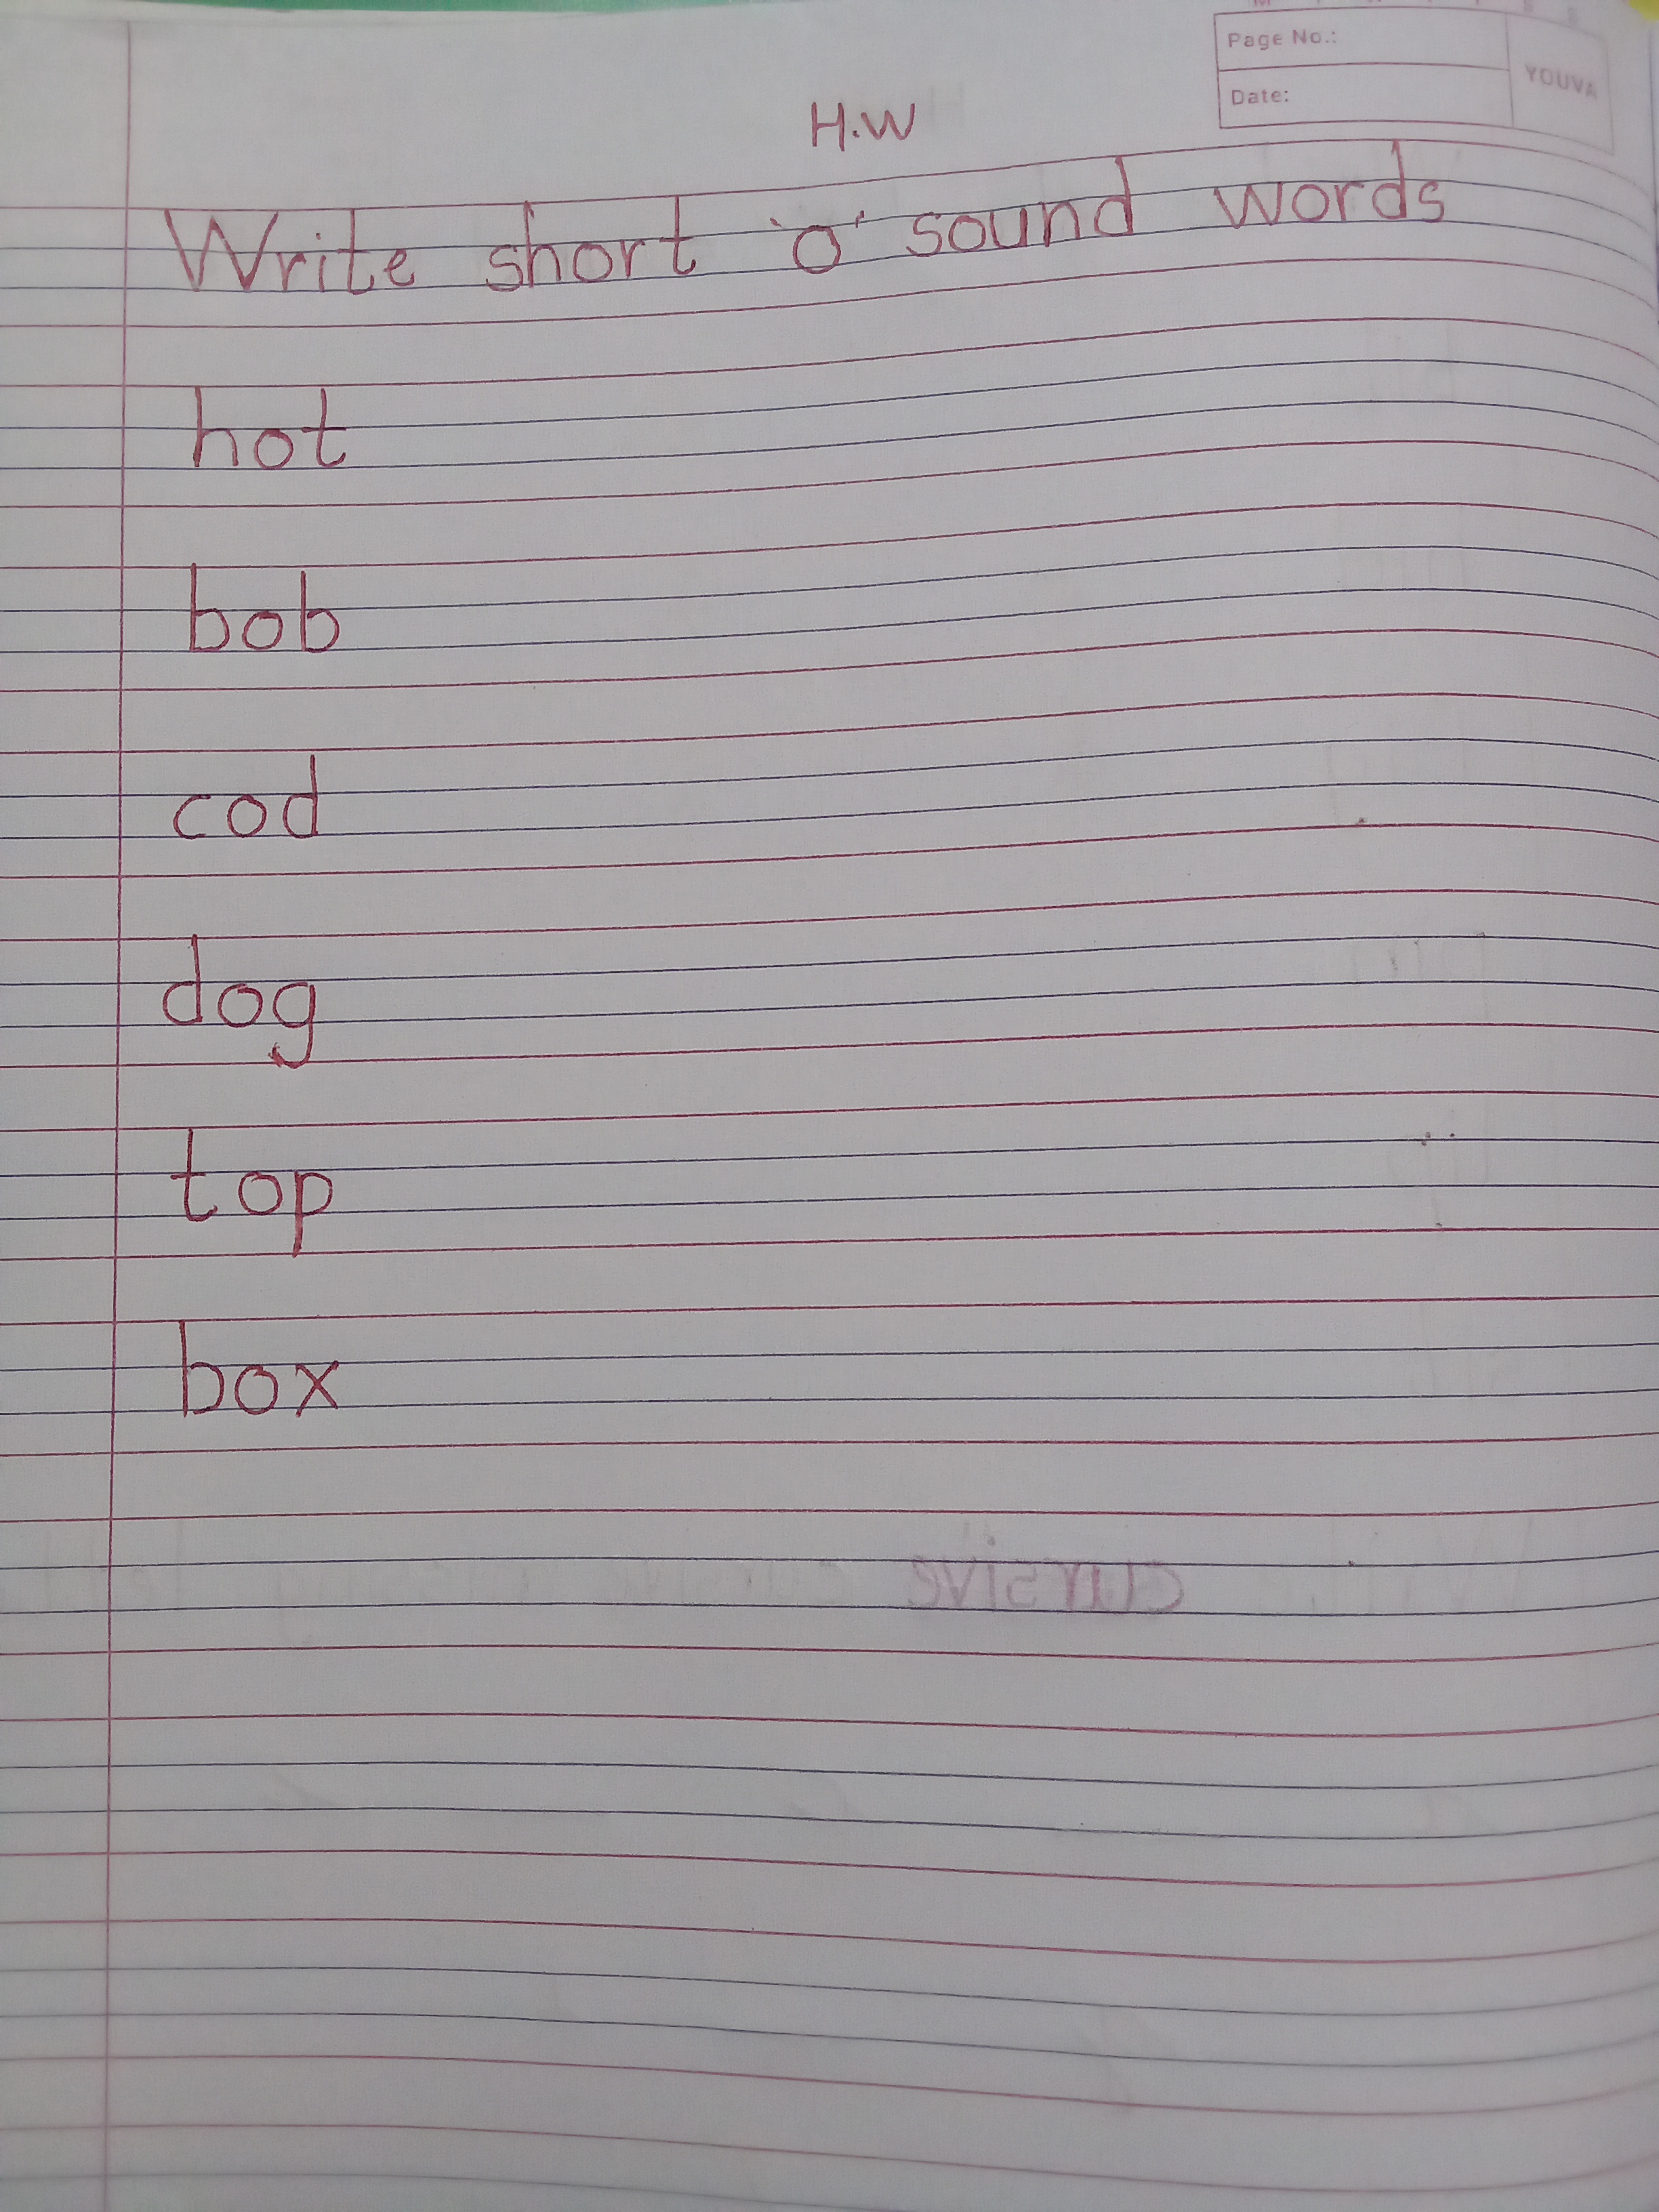 Page No.:
YOUVA
Date:
H.W
Write short 'o' sound words
hot
bob
cod
dog
top
box
cursive